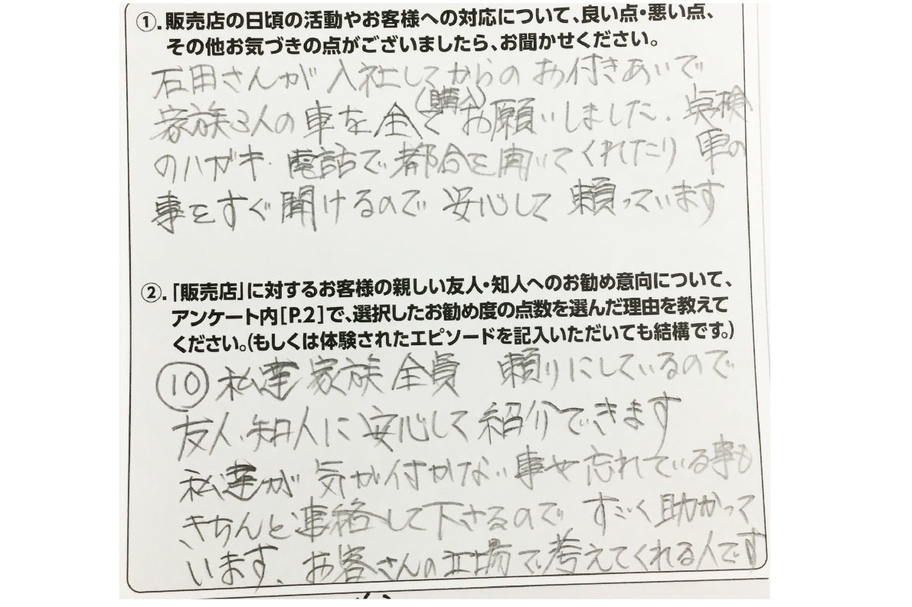 ①.販売店の日頃の活動やお客様への対応について、良い点・悪い点、
その他お気づきの点がございましたら、お聞かせください。
石田さんが 入社してからの お付きあいで
家族3人の 車を 全て(購入)お願いしました. 点検
のハガキ. 電話で 都合を聞いてくれたり 車の
事をすぐ 聞けるので 安心して 頼っています
②.「販売店」に対するお客様の親しい友人・知人へのお勧め意向について、
アンケート内[P.2]で、選択したお勧め度の点数を選んだ理由を教えて
ください。(もしくは体験されたエピソードを記入いただいても結構です。)
⑩ 私達 家族 全員 頼りにしているので
友人.知人に 安心して 紹介できます
私達が 気が付かない 事や 忘れている事も
きちんと 連絡して下さるので すごく助かって
います. お客さんの立場で考えてくれる人です